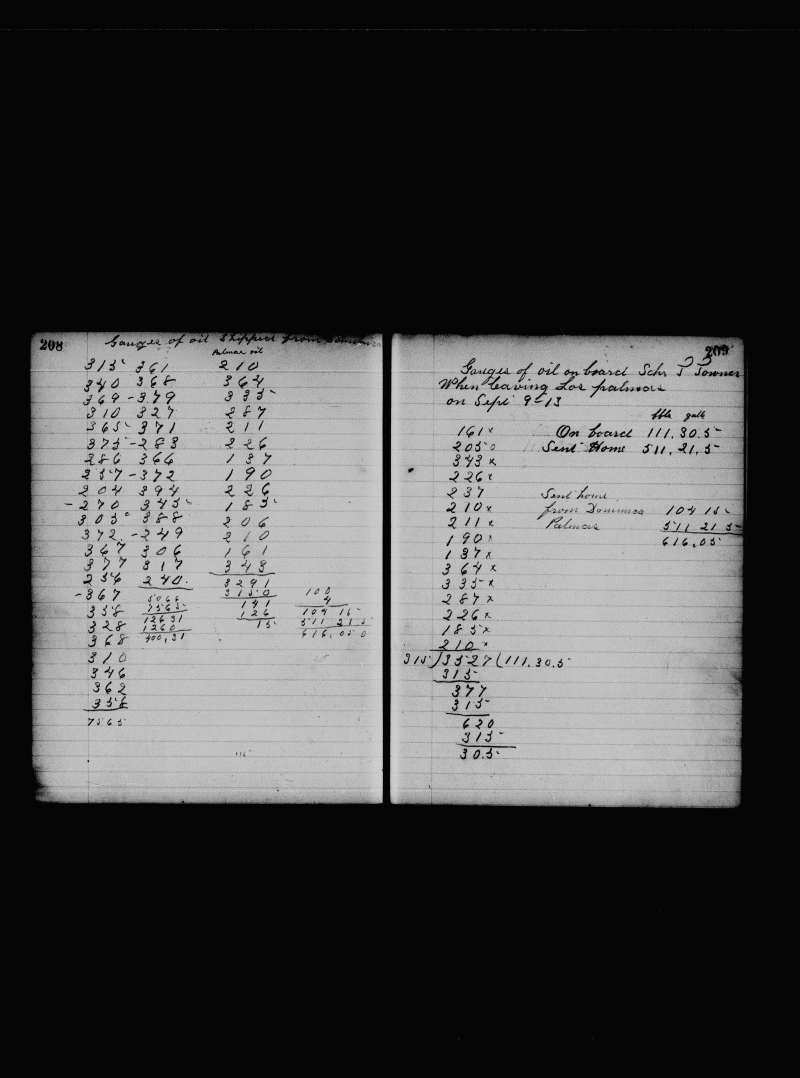 208
Gauges of oil Shipped from Dominica
Palmas oil
315 361 210
340 368 364
369 - 379 335
310 327 287
365 371 211
375 - 283 226
286 366 137
257 - 372 190
204 394 226
- 270 345 185
305 388 206
372 - 249 210
367 306 161
377 317 343
256 240. 3291
- 367 5066 3150 100
358 7565 141 4
328 12631 126 104 15
368 1260 15 511 21 5
400,31 616,05 0
310
346
362
358
7565
209
Gauges of oil on board Schr T Towner
When leaving Los palmas
on Sept 9th 13
bbls galls
161x On board 111.30.5
2050 Sent Home 511,21,5
343x
226x
237 Sent home
210x from Dominica 104 15
211x Palmas 511 21 5
190x 616,05
137x
364x
335x
287x
226x
185x
210x
315)3527(111.30.5
315
377
315
620
315
30.5